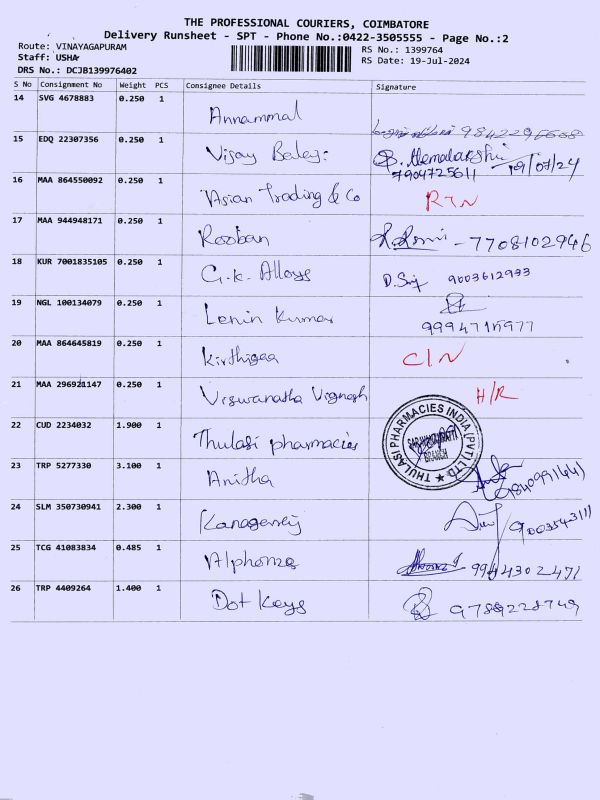 THE PROFESSIONAL COURIERS, COIMBATORE
Delivery Runsheet - SPT - Phone No.:0422-3505555 - Page No.:2
Route: VINAYAGAPURAM
Staff: USHA
DRS No.: DCJB139976402
RS No.: 1399764
RS Date: 19-Jul-2024
S No Consignment No Weight PCS Consignee Details Signature
14 SVG 4678883 0.250 1 Annammal
15 EDQ 22307356 0.250 1 Vijay 7904725611 19/07/24
16 MAA 864550092 0.250 1 Asian Trading & Co RTN
17 MAA 944948171 0.250 1 Rooban - 7708102946
18 KUR 7001835105 0.250 1 G.K. Alloys 9003612933
19 NGL 100134079 0.250 1 Lenin Kumar
20 MAA 864645819 0.250 1 Kirthigaa CIN
21 MAA 296921147 0.250 1 Viswanatha Vignesh H/R
22 CUD 2234032 1.900 1 Thulasi pharmacies
THULASI PHARMACIES INDIA (PVT) LTD
BRANCH
23 TRP 5277330 3.100 1 Anitha
24 SLM 350730941 2.300 1
25 TCG 41083834 0.485 1 Alphonse 9944302471
26 TRP 4409264 1.400 1 Dot Keys 9789228749